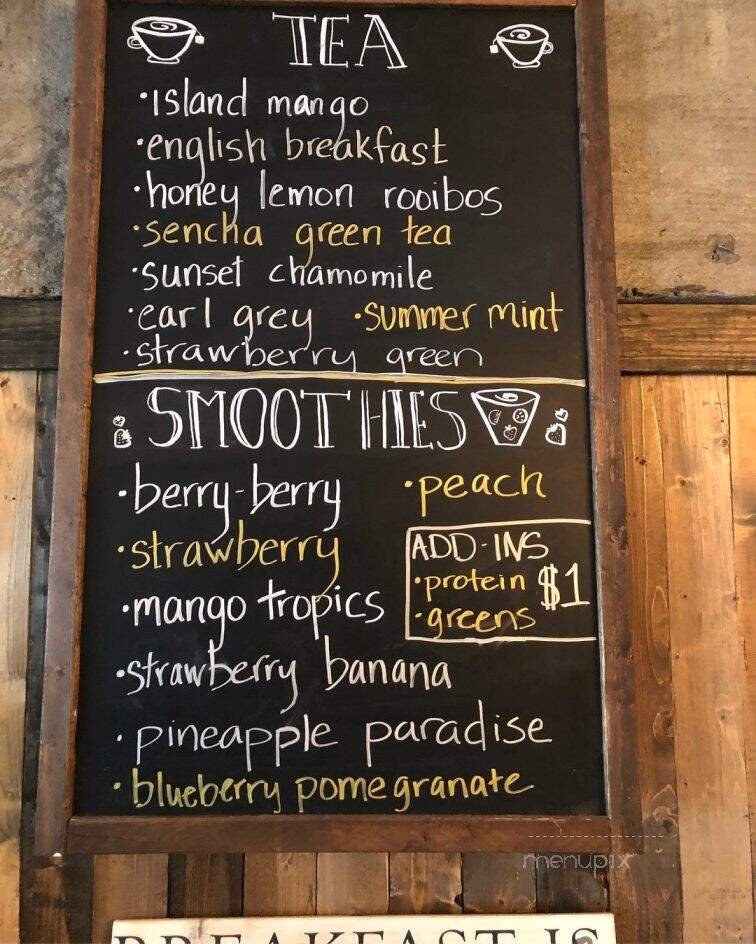 TEA
•island mango
•english breakfast
•honey lemon rooibos
•sencha green tea
•sunset chamomile
•earl grey •summer mint
•strawberry green
SMOOTHIES
•berry-berry •peach
•strawberry
ADD-INS
•protein $1
•greens
•mango tropics
•strawberry banana
•pineapple paradise
•blueberry pomegranate
menupix
BREAKFAST IS